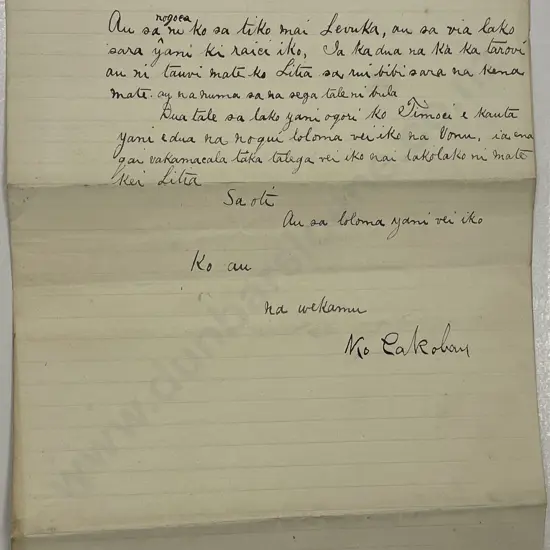 Au sa nogoca ni ko sa tiko mai Levuka, au sa via lako
sara yani ki raici iko, Ia ka dua na ka ka tarovi
au ni tauvi mate ko Litia sa rui bibi sara na kena
mate. au na numa sa na sega tale ni bula
Dua tale sa lako yani ogori ko Timoci e kauta
yani e dua na noqui loloma vei iko na Vonu, ia ena
qai vakamacala taka talega vei iko nai lakolako ni mate
kei Litia
Sa oti
Au sa loloma yani vei iko
Ko au
na wekamu
Ko Cakobau